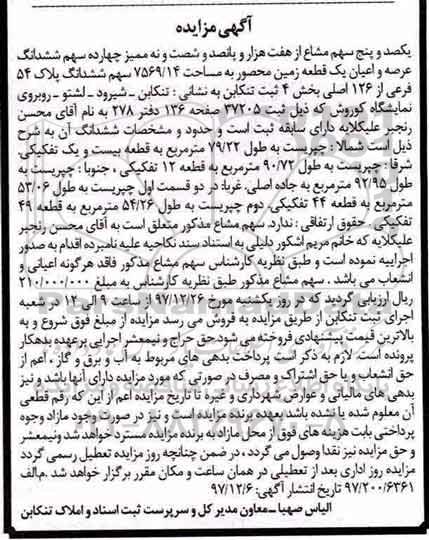 آگهی مزایده
یکصد و پنج سهم مشاع از هفت هزار و پانصد و شصت و نه ممیز چهارده سهم ششدانگ
عرصه و اعیان یک قطعه زمین محصور به مساحت ۷۵۶۹/۱۴ سهم ششدانگ پلاک ۵۴
فرعی از ۱۲۶ اصلی بخش ۴ ثبت تنکابن به نشانی : تنکابن ـ شیرود ـ لشتو ـ روبروی
نمایشگاه کوروش که ذیل ثبت ۳۷۲۰۵ صفحه ۱۳۶ دفتر ۲۷۸ به نام آقای محسن
رنجبر علیکلایه دارای سابقه ثبت است و حدود و مشخصات ششدانگ آن به شرح
ذیل است شمالا : چپریست به طول ۷۹/۲۲ مترمربع به قطعه بیست و یک تفکیکی
شرقا : چپریست به طول ۹۰/۷۲ مترمربع به قطعه ۱۲ تفکیکی ، جنوبا : چپریست به
طول ۹۲/۹۵ مترمربع به جاده اصلی. غربا، در دو قسمت اول چپریست به طول ۵۳/۰۶
مترمربع به قطعه ۴۴ تفکیکی، دوم چپریست به طول ۵۴/۲۶ مترمربع به قطعه ۴۹
تفکیکی. حقوق ارتفاقی : ندارد. سهم مشاع مذکور متعلق است به آقای محسن رنجبر
علیکلایه که خانم مریم اشکور دلیلی به استناد سند نکاحیه علیه نامبرده اقدام به صدور
اجراییه نموده است و طبق نظریه کارشناس سهم مشاع مذکور فاقد هرگونه اعیانی و
انشعاب می باشد . سهم مشاع مذکور طبق نظریه کارشناس به مبلغ ۲۱۰/۰۰۰/۰۰۰
ریال ارزیابی گردید که در روز یکشنبه مورخ ۹۷/۱۲/۲۶ از ساعت ۹ الی ۱۲ در شعبه
اجرای ثبت تنکابن از طریق مزایده به فروش می رسد مزایده از مبلغ فوق شروع و به
بالاترین قیمت پیشنهادی فروخته می شود.حق حراج و نیمعشر اجرایی برعهده بدهکار
پرونده است. لازم به ذکر است پرداخت بدهی های مربوط به آب و برق و گاز ، اعم از
حق انشعاب و یا حق اشتراک و مصرف در صورتی که مورد مزایده دارای آنها باشد و نیز
بدهی های مالیاتی و عوارض شهرداری و غیره تا تاریخ مزایده اعم از این که رقم قطعی
آن معلوم شده یا نشده باشد بعهده برنده مزایده است و نیز در صورت وجود مازاد وجوه
پرداختی بابت هزینه های فوق از محل مازاد به برنده مزایده مسترد خواهد شد ونیمعشر
و حق مزایده نیز نقدا وصول می گردد ، در ضمن چنانچه روز مزایده تعطیل رسمی گردد
مزایده روز اداری بعد از تعطیلی در همان ساعت و مکان مقرر برگزار خواهد شد .م.الف
۹۷/۲۰۰/۶۳۶۱ تاریخ انتشار آگهی: ۹۷/۱۲/۶
الیاس صهبا ـ معاون مدیر کل و سرپرست ثبت اسناد و املاک تنکابن